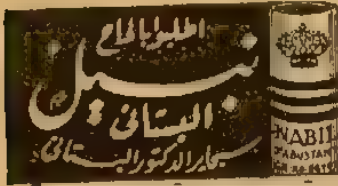 اطلبوا بالحاح
نبيل
البستاني
سجاير الدكتور البستاني
NABIL
BUSTANI